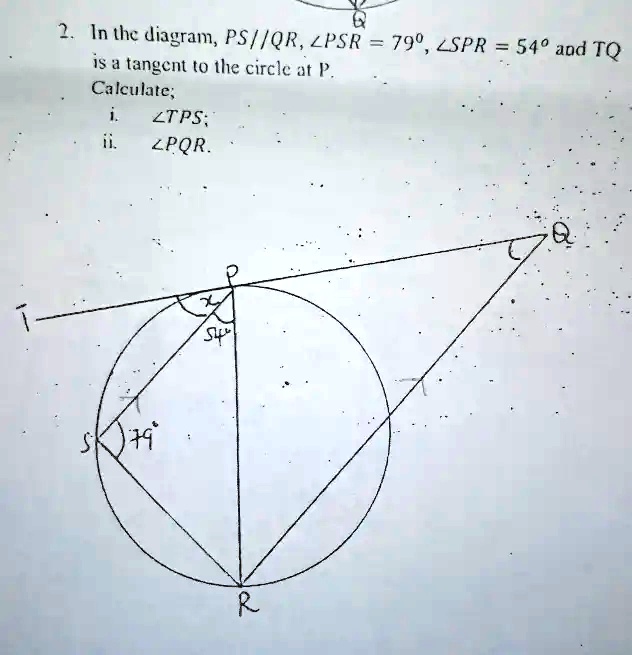 Q
2. In the diagram, PS//QR, ∠PSR = 79⁰, ∠SPR = 54⁰ and TQ
is a tangent to the circle at P.
Calculate;
i. ∠TPS;
ii. ∠PQR.
Q
P
T
x
54°
S
79°
R